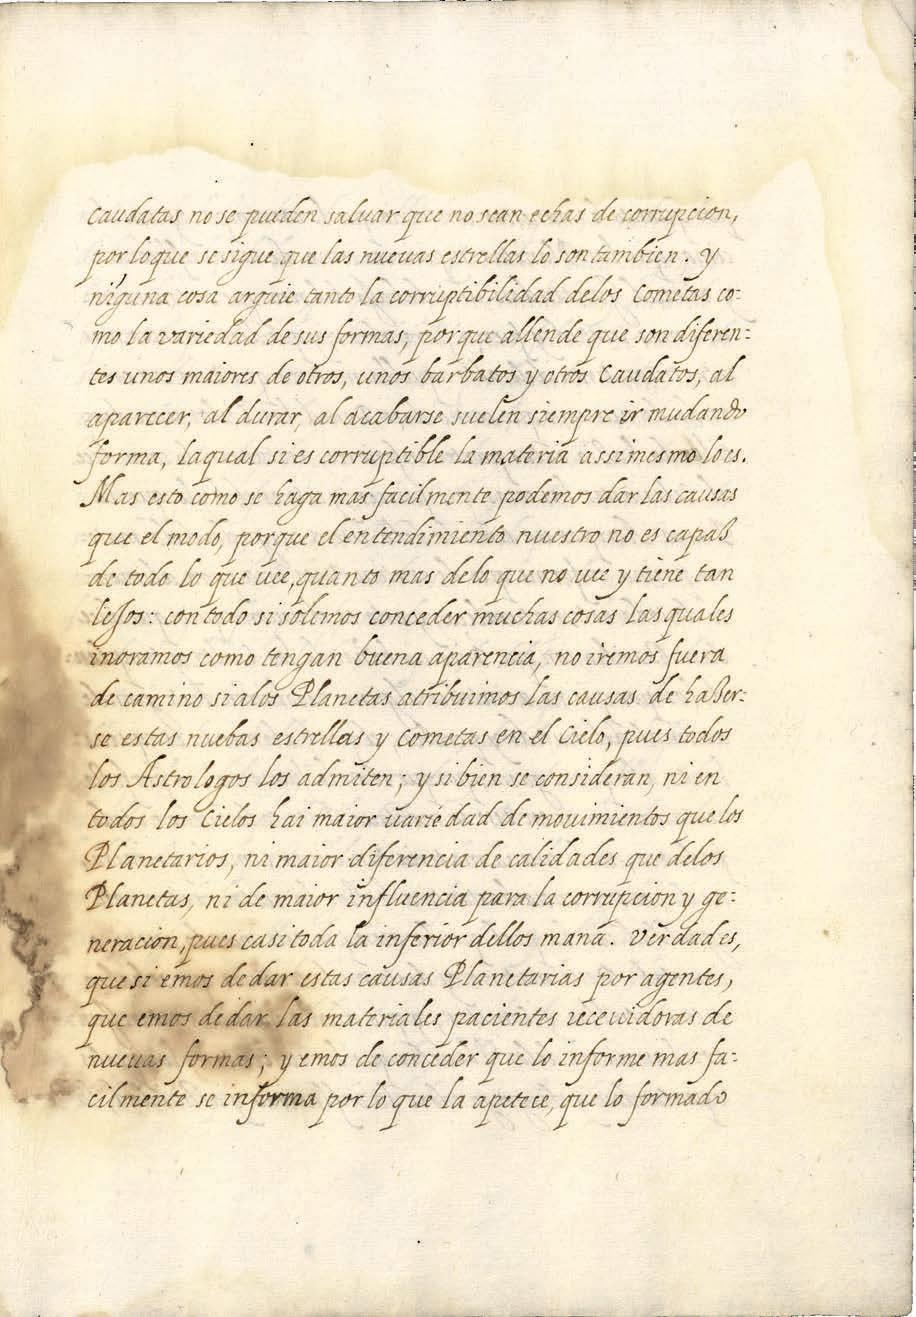 caudatas no se pueden salvar que no sean echas de corrupcion,
por lo que se sigue que las nuevas estrellas lo son tambien. y
niguna cosa arguie tanto la corruptibilidad de los Cometas co:
mo la variedad de sus formas, porque allende que son diferen:
tes unos maiores de otros, unos barbatos y otros Caudatos, al
aparecer, al durar, al acabarse suelen siempre ir mudando
forma, laqual si es corruptible la materia assimesmo lo es.
Mas esto como se haga mas facilmente podemos dar las causas
que el modo, porque el entendimiento nuestro no es capaz
de todo lo que vee, quanto mas de lo que no vee y tiene tan
lejos: con todo si solemos conceder muchas cosas las quales
inoramos como tengan buena aparencia, no iremos fuera
de camino si a los Planetas atribuimos las causas de hazer:
se estas nuebas estrellas y Cometas en el Cielo, pues todos
los Astrologos los admiten; y si bien se consideran, ni en
todos los Cielos hai maior variedad de movimientos que los
Planetarios, ni maior diferencia de calidades que de los
Planetas, ni de maior influencia para la corrupcion y ge:
neracion, pues casi toda la inferior dellos mana. Verdad es,
que si emos de dar estas causas Planetarias por agentes,
que emos de dar las materiales pacientes recevidoras de
nuevas formas; y emos de conceder que lo informe mas fa:
cilmente se informa por lo que la apetece, que lo formado